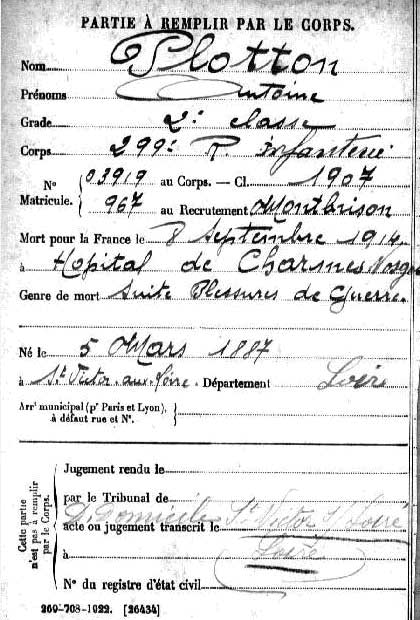 PARTIE À REMPLIR PAR LE CORPS.
Nom Plotton
Prénoms Antoine
Grade 2e classe
Corps 299e R. Infanterie
N° 03919 au Corps. — Cl. 1907
Matricule. 967 au Recrutement Montbrison
Mort pour la France le 8 Septembre 1914
à Hôpital de Charmes Vosges
Genre de mort Suite Blessures de Guerre
Né le 5 Mars 1887
à St Victor-sur-Loire. Département Loire
Arrt municipal (pr Paris et Lyon),
à défaut rue et N°.
Cette partie
n'est pas à remplir
par le Corps.
Jugement rendu le
par le Tribunal de
Domicile St Victor s/ Loire
acte ou jugement transcrit le
à Loire
N° du registre d'état civil
269-708-1922. [26434]